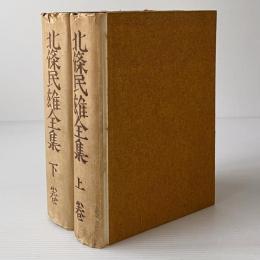 北條民雄全集 上卷
北條民雄全集 下卷